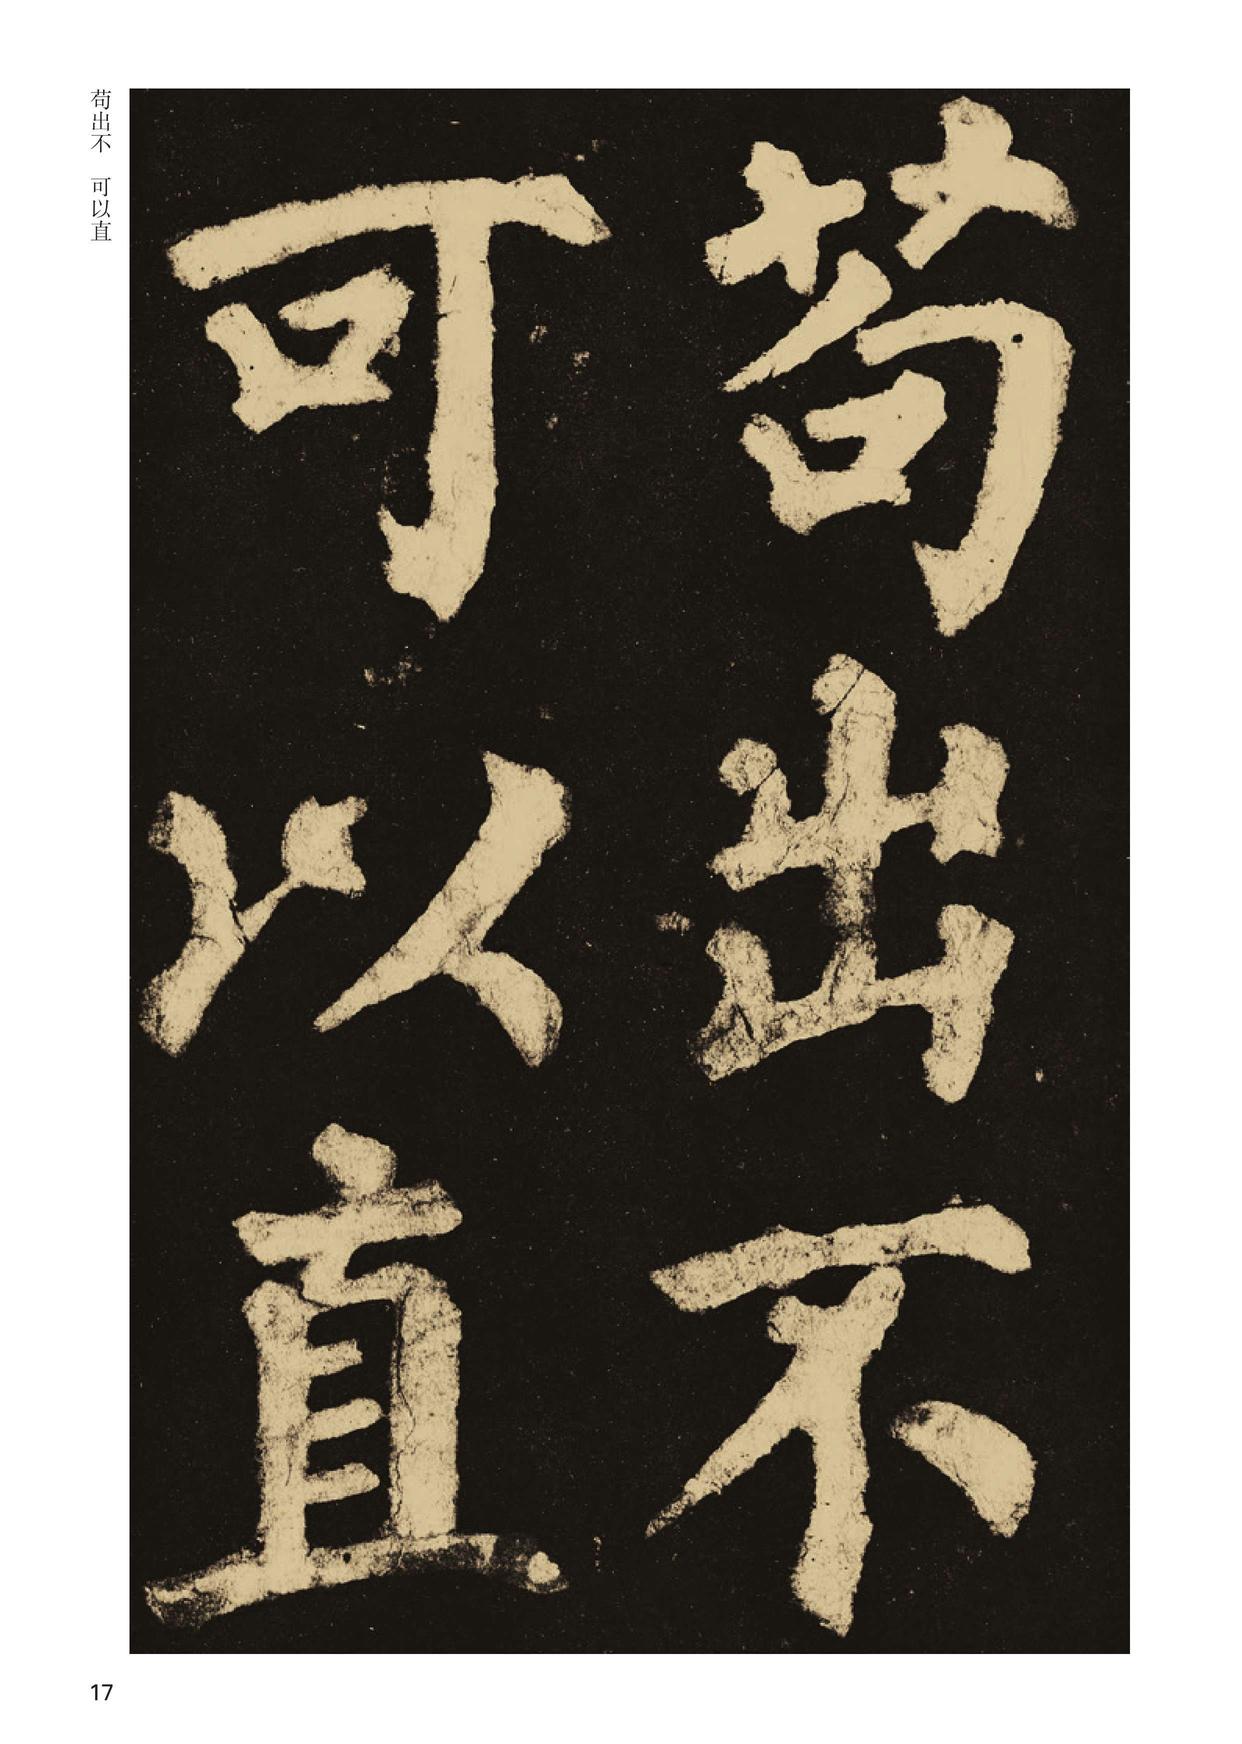 苟出不
可以直
苟出不　可以直
17